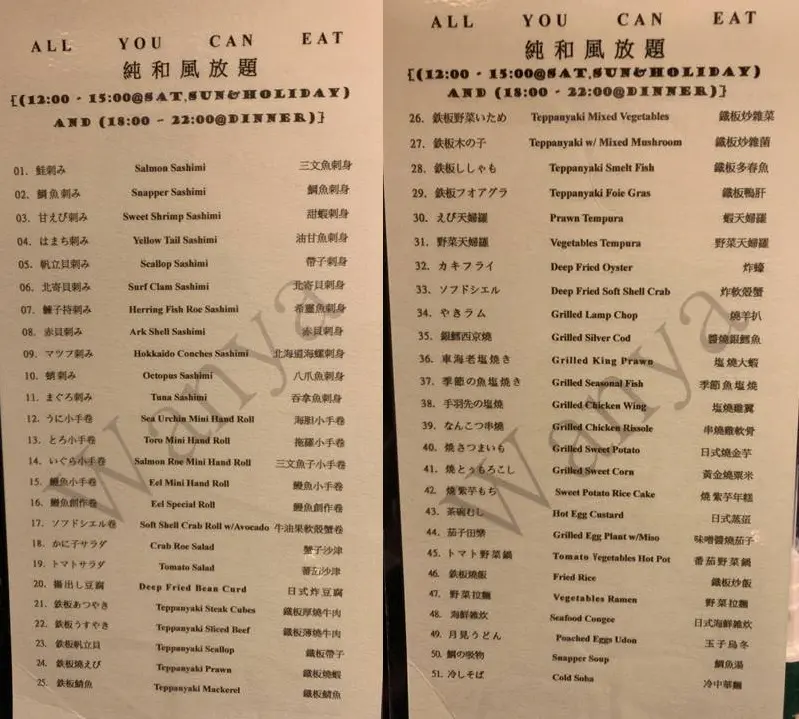 ALL YOU CAN EAT
純和風放題
{(12:00 - 15:00@SAT,SUN&HOLIDAY)
AND (18:00 - 22:00@DINNER)}
01. 鮭刺み Salmon Sashimi 三文魚刺身
02. 鯛魚刺み Snapper Sashimi 鯛魚刺身
03. 甘えび刺み Sweet Shrimp Sashimi 甜蝦刺身
04. はまち刺み Yellow Tail Sashimi 油甘魚刺身
05. 帆立貝刺み Scallop Sashimi 帶子刺身
06. 北寄貝刺み Surf Clam Sashimi 北寄貝刺身
07. 鰊子持刺み Herring Fish Roe Sashimi 希靈魚刺身
08. 赤貝刺み Ark Shell Sashimi 赤貝刺身
09. マツブ刺み Hokkaido Conches Sashimi 北海道海螺刺身
10. 蛸刺み Octopus Sashimi 八爪魚刺身
11. まぐろ刺み Tuna Sashimi 吞拿魚刺身
12. うに小手卷 Sea Urchin Mini Hand Roll 海胆小手卷
13. とろ小手卷 Toro Mini Hand Roll 拖羅小手卷
14. いぐら小手卷 Salmon Roe Mini Hand Roll 三文魚子小手卷
15. 鰻魚小手卷 Eel Mini Hand Roll 鰻魚小手卷
16. 鰻魚創作卷 Eel Special Roll 鰻魚創作卷
17. ソフドシエル卷 Soft Shell Crab Roll w/Avocado 牛油果軟殼蟹卷
18. かに子サラダ Crab Roe Salad 蟹子沙津
19. トマトサラダ Tomato Salad 蕃茄沙津
20. 揚出し豆腐 Deep Fried Bean Curd 日式炸豆腐
21. 鉄板あつやき Teppanyaki Steak Cubes 鐵板厚燒牛肉
22. 鉄板うすやき Teppanyaki Sliced Beef 鐵板薄燒牛肉
23. 鉄板帆立貝 Teppanyaki Scallop 鐵板帶子
24. 鉄板燒えび Teppanyaki Prawn 鐵板燒蝦
25. 鉄板鯖魚 Teppanyaki Mackerel 鐵板鯖魚
Wanya
ALL YOU CAN EAT
純和風放題
{(12:00 - 15:00@SAT,SUN&HOLIDAY)
AND (18:00 - 22:00@DINNER)}
26. 鉄板野菜いため Teppanyaki Mixed Vegetables 鐵板炒雜菜
27. 鉄板木の子 Teppanyaki w/ Mixed Mushroom 鐵板炒雜菌
28. 鉄板ししゃも Teppanyaki Smelt Fish 鐵板多春魚
29. 鉄板フオアグラ Teppanyaki Foie Gras 鐵板鴨肝
30. えび天婦羅 Prawn Tempura 蝦天婦羅
31. 野菜天婦羅 Vegetables Tempura 野菜天婦羅
32. カキフライ Deep Fried Oyster 炸蠔
33. ソフドシエル Deep Fried Soft Shell Crab 炸軟殼蟹
34. やきラム Grilled Lamp Chop 燒羊扒
35. 銀鱈西京燒 Grilled Silver Cod 醬燒銀鱈魚
36. 車海老塩燒き Grilled King Prawn 塩燒大蝦
37. 季節の魚塩燒き Grilled Seasonal Fish 季節魚塩燒
38. 手羽先の塩燒 Grilled Chicken Wing 塩燒雞翼
39. なんこつ串燒 Grilled Chicken Rissole 串燒雞軟骨
40. 燒さつまいも Grilled Sweet Potato 日式燒金芋
41. 燒とぅもろこし Grilled Sweet Corn 黃金燒粟米
42. 燒紫芋もち Sweet Potato Rice Cake 燒紫芋年糕
43. 茶碗むし Hot Egg Custard 日式蒸蛋
44. 茄子田樂 Grilled Egg Plant w/Miso 味噌醬燒茄子
45. トマト野菜鍋 Tomato Vegetables Hot Pot 番茄野菜鍋
46. 鉄板燒飯 Fried Rice 鐵板炒飯
47. 野菜拉麵 Vegetables Ramen 野菜拉麵
48. 海鮮雑炊 Seafood Congee 日式海鮮雑炊
49. 月見うどん Poached Eggs Udon 玉子烏冬
50. 鯛の吸物 Snapper Soup 鯛魚湯
51. 冷しそば Cold Soba 冷中華麵
Wanya